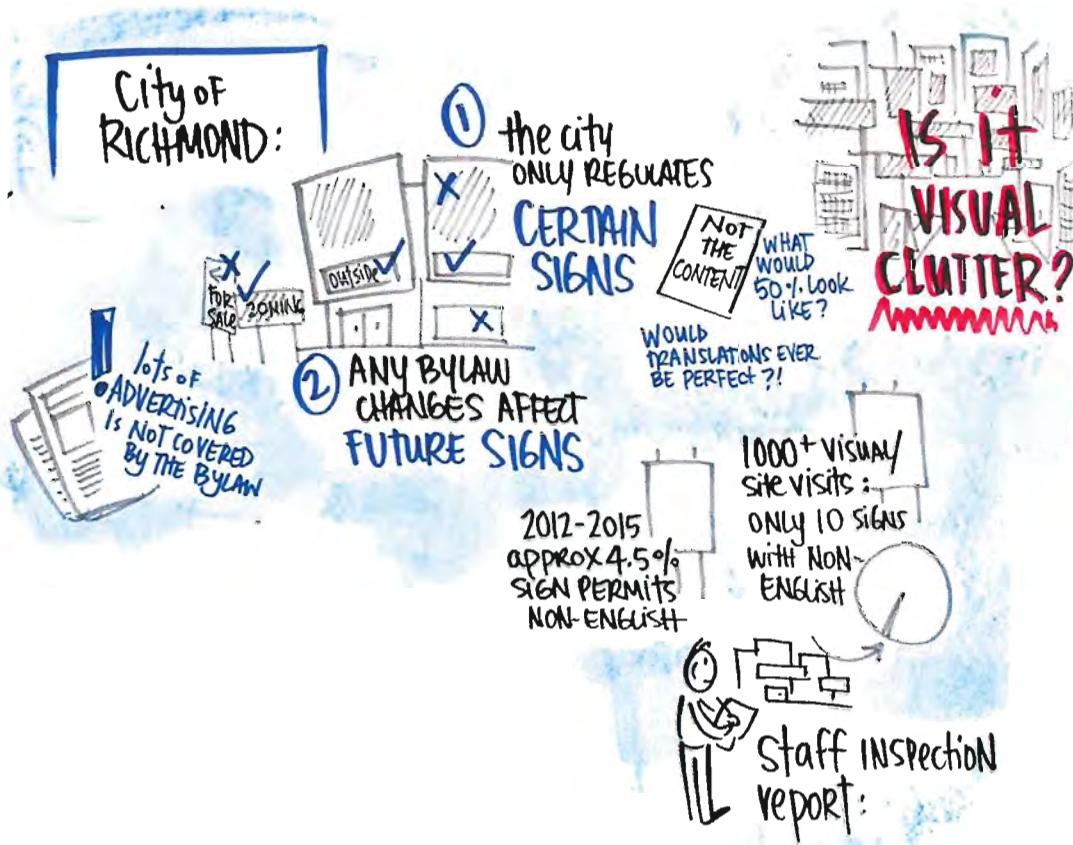 City OF
RICHMOND:
1
the city
ONLY REGULATES
CERTAIN
SIGNS
NOT
THE
CONTENT
WHAT
WOULD
50% LOOK
LIKE?
WOULD
TRANSLATIONS EVER
BE PERFECT?!
IS it
VISUAL
CLUTTER?
OUTSIDE
FOR
SALE
ZONING
! lots OF
ADVERTISING
IS NOT COVERED
BY THE BYLAW
2
ANY BYLAW
CHANGES AFFECT
FUTURE SIGNS
2012-2015
APPROX 4.5%
SIGN PERMITS
NON-ENGLISH
1000+ VISUAL/
site visits:
ONLY 10 SIGNS
with NON-
ENGLISH
Staff INSPECTION
report: